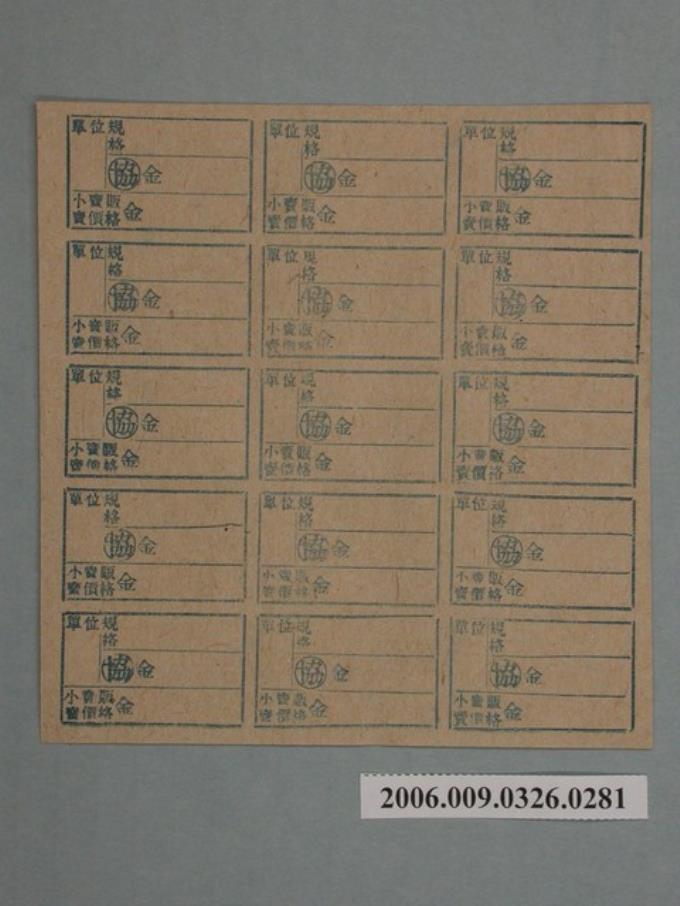 單位規
格
協金
小賣販
賣價格金
單位規
格
協金
小賣販
賣價格金
單位規
格
協金
小賣販
賣價格金
單位規
格
協金
小賣販
賣價格金
單位規
格
協金
小賣販
賣價格金
單位規
格
協金
小賣販
賣價格金
單位規
格
協金
小賣販
賣價格金
單位規
格
協金
小賣販
賣價格金
單位規
格
協金
小賣販
賣價格金
單位規
格
協金
小賣販
賣價格金
單位規
格
協金
小賣販
賣價格金
單位規
格
協金
小賣販
賣價格金
單位規
格
協金
小賣販
賣價格金
單位規
格
協金
小賣販
賣價格金
單位規
格
協金
小賣販
賣價格金
2006.009.0326.0281